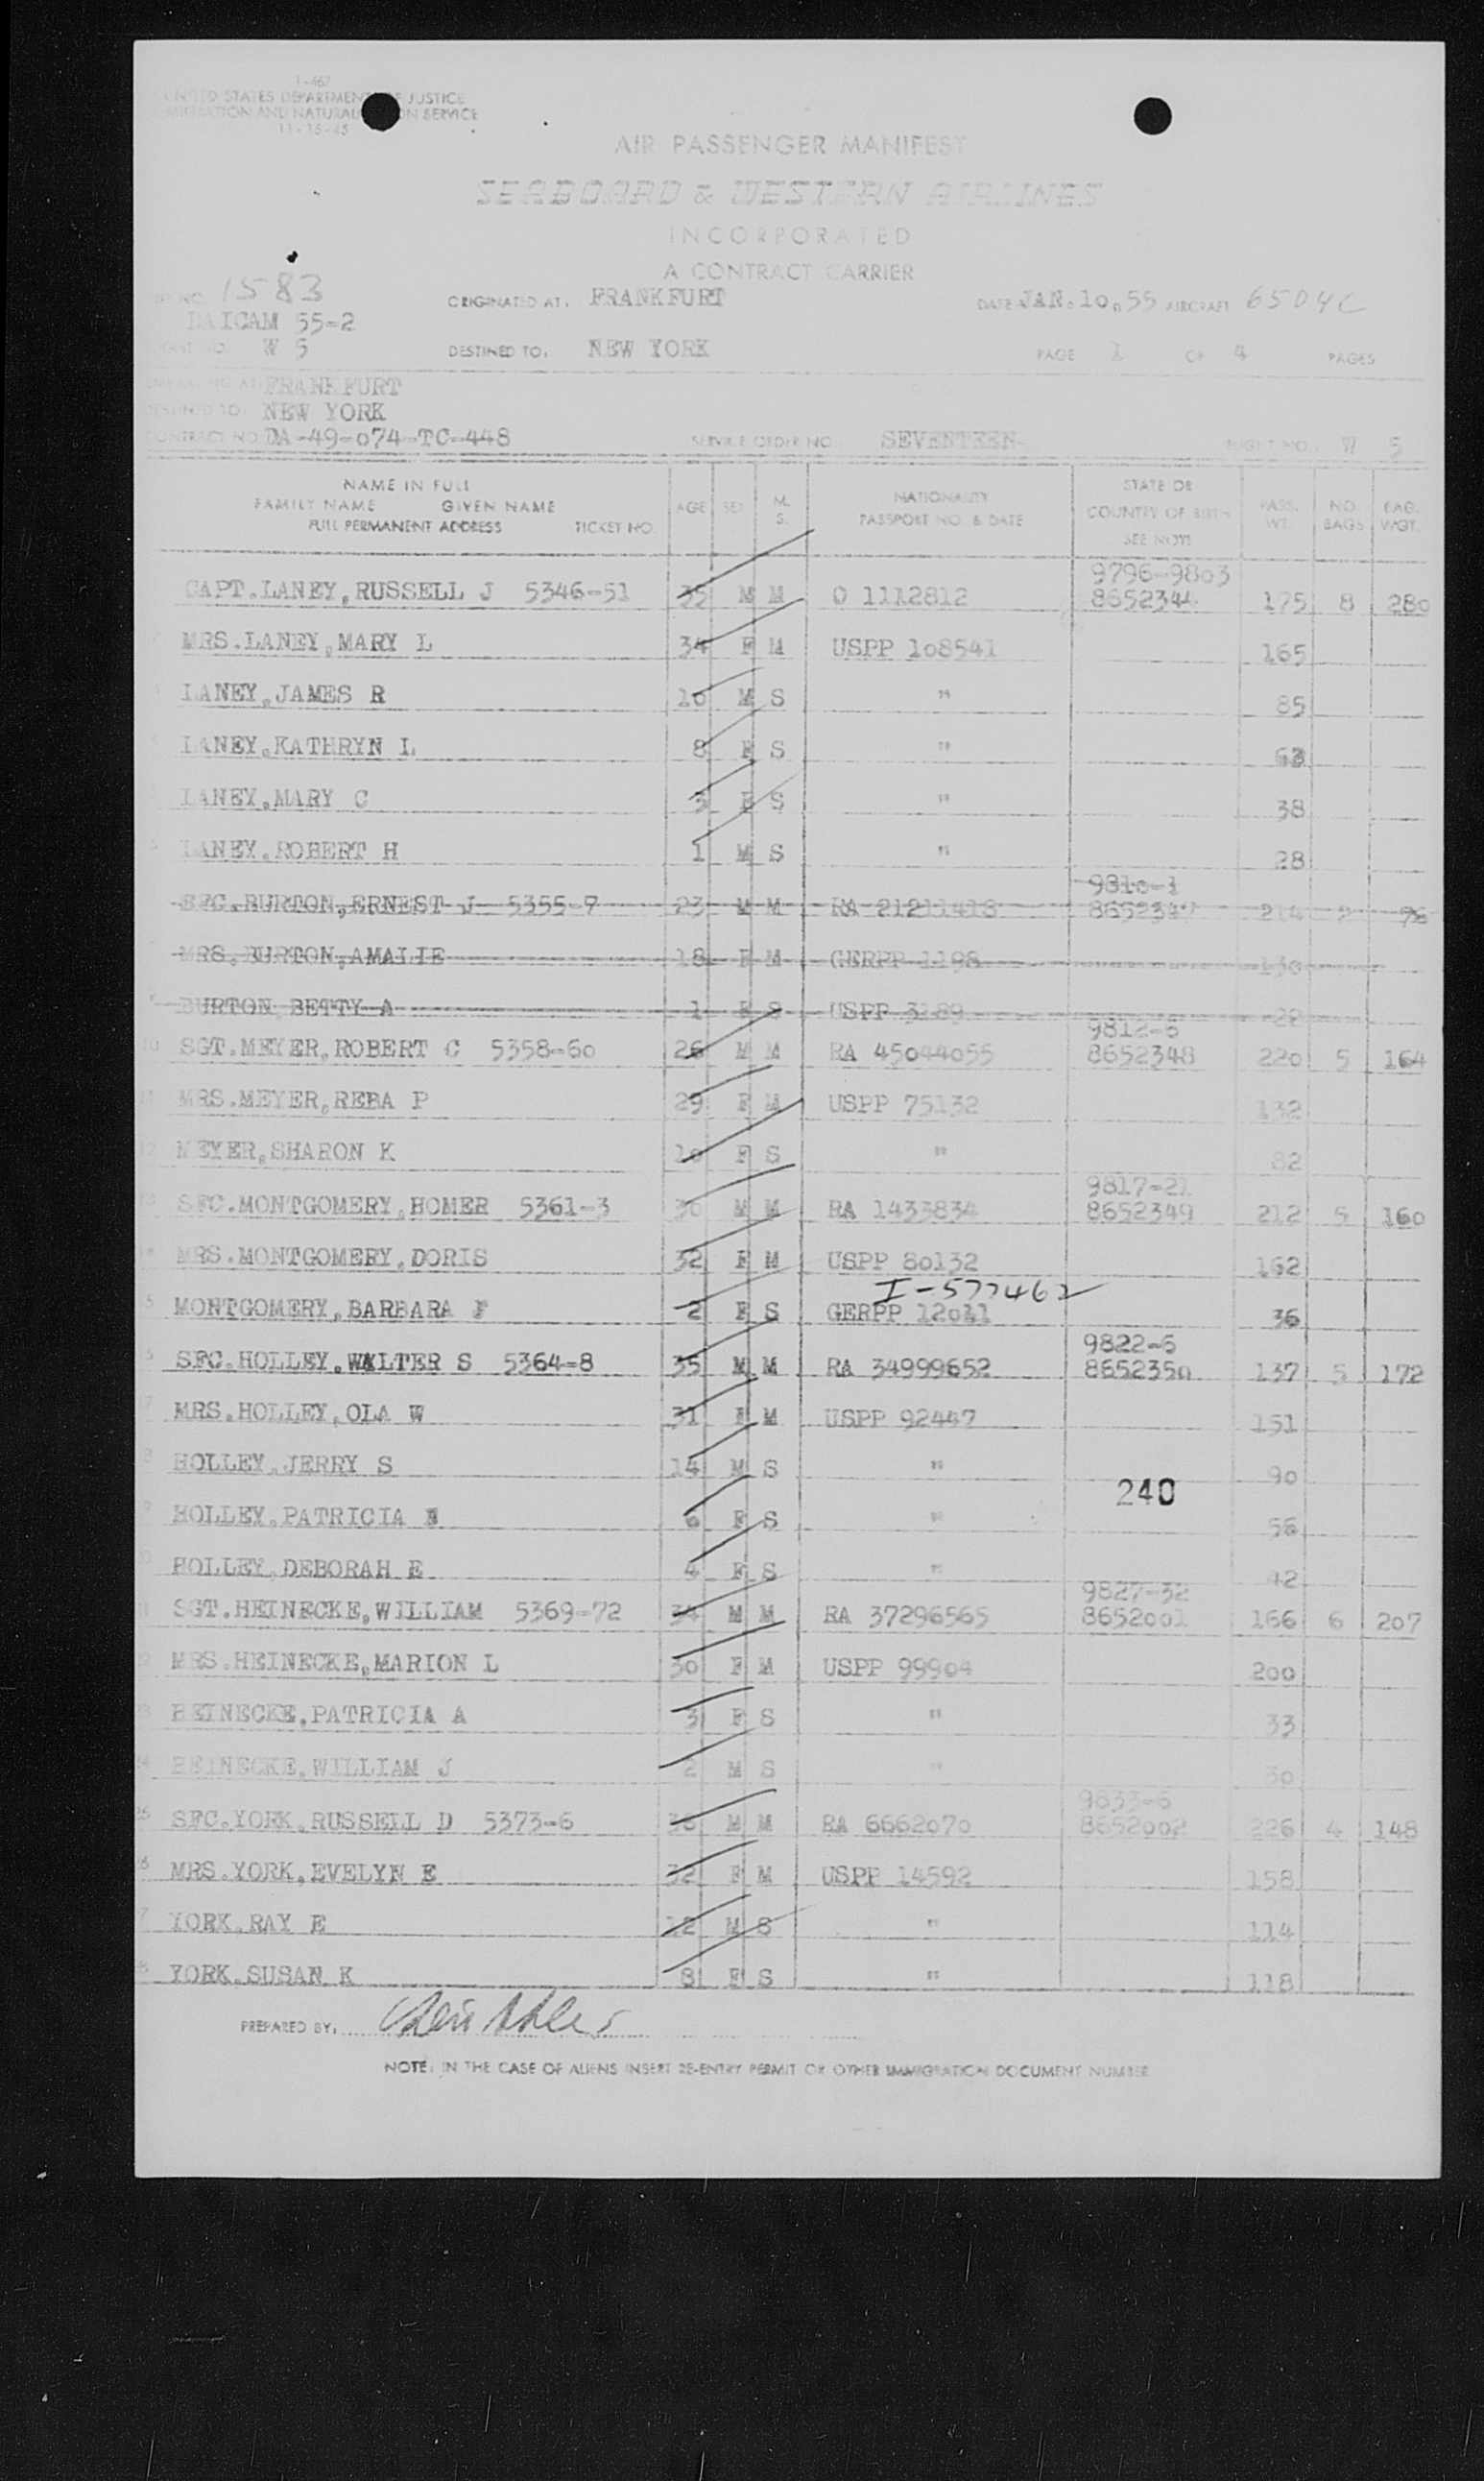 I-467
UNITED STATES DEPARTMENT OF JUSTICE
IMMIGRATION AND NATURALIZATION SERVICE
11-15-45
AIR PASSENGER MANIFEST
SEABOARD & WESTERN AIRLINES
INCORPORATED
A CONTRACT CARRIER
1583 ORIGINATED AT. FRANKFURT DATE JAN. 10, 55 AIRCRAFT 6504C
DAICAM 55-2
W 5 DESTINED TO. NEW YORK PAGE 1 OF 4 PAGES
FRANKFURT
DESTINED TO. NEW YORK
CONTRACT NO. DA-49-074-TC-448 SERVICE ORDER NO. SEVENTEEN FLIGHT NO. W 5
NAME IN FULL
FAMILY NAME GIVEN NAME
FULL PERMANENT ADDRESS TICKET NO
AGE SEX M. S. NATIONALITY PASSPORT NO. & DATE STATE OR COUNTRY OF BIRTH SEE NOTE PASS. WT. NO. BAGS BAG. WGT.
9796-9803
CAPT.LANEY,RUSSELL J 5346-51 35 M M O 1112812 8652344 175 8 280
MRS.LANEY,MARY L 34 F M USPP 108541 165
LANEY,JAMES R 10 M S " 85
LANEY,KATHRYN L 8 F S " 63
LANEY,MARY C 3 F S " 38
LANEY,ROBERT H 1 M S " 28
9810-1
SFC.BURTON,ERNEST J 5355-7 23 M M RA 21211418 8652347 214 2 76
MRS.BURTON,AMALIE 18 F M GERPP 1198 130
BURTON BETTY A 1 F S USPP 3189 28
9812-6
10 SGT.MEYER,ROBERT C 5358-60 26 M M RA 45044055 8652348 220 5 164
11 MRS.MEYER,REBA P 29 F M USPP 75132 132
12 MEYER,SHARON K 10 F S " 82
9817-21
SFC.MONTGOMERY,HOMER 5361-3 30 M M RA 1433834 8652349 212 5 160
MRS.MONTGOMERY,DORIS 32 F M USPP 80132 162
I-577462
MONTGOMERY,BARBARA F 2 F S GERPP 12011 36
9822-6
SFC.HOLLEY,WALTER S 5364-8 35 M M RA 34999652 8652350 137 5 172
MRS.HOLLEY,OLA W 31 F M USPP 92447 151
HOLLEY,JERRY S 14 M S " 90
240
HOLLEY,PATRICIA E 6 F S " 56
HOLLEY,DEBORAH E 4 F S " 42
9827-32
SGT.HEINECKE,WILLIAM 5369-72 34 M M RA 37296565 8652001 166 6 207
MRS.HEINECKE,MARION L 30 F M USPP 99904 200
HEINECKE,PATRICIA A 3 F S " 33
HEINECKE,WILLIAM J 2 M S " 30
9833-6
25 SFC.YORK,RUSSELL D 5373-6 36 M M RA 6662070 8652002 226 4 148
MRS.YORK,EVELYN E 32 F M USPP 14592 158
YORK,RAY E 12 M S " 114
YORK,SUSAN K 8 F S " 118
PREPARED BY.
NOTE: IN THE CASE OF ALIENS INSERT RE-ENTRY PERMIT OR OTHER IMMIGRATION DOCUMENT NUMBER